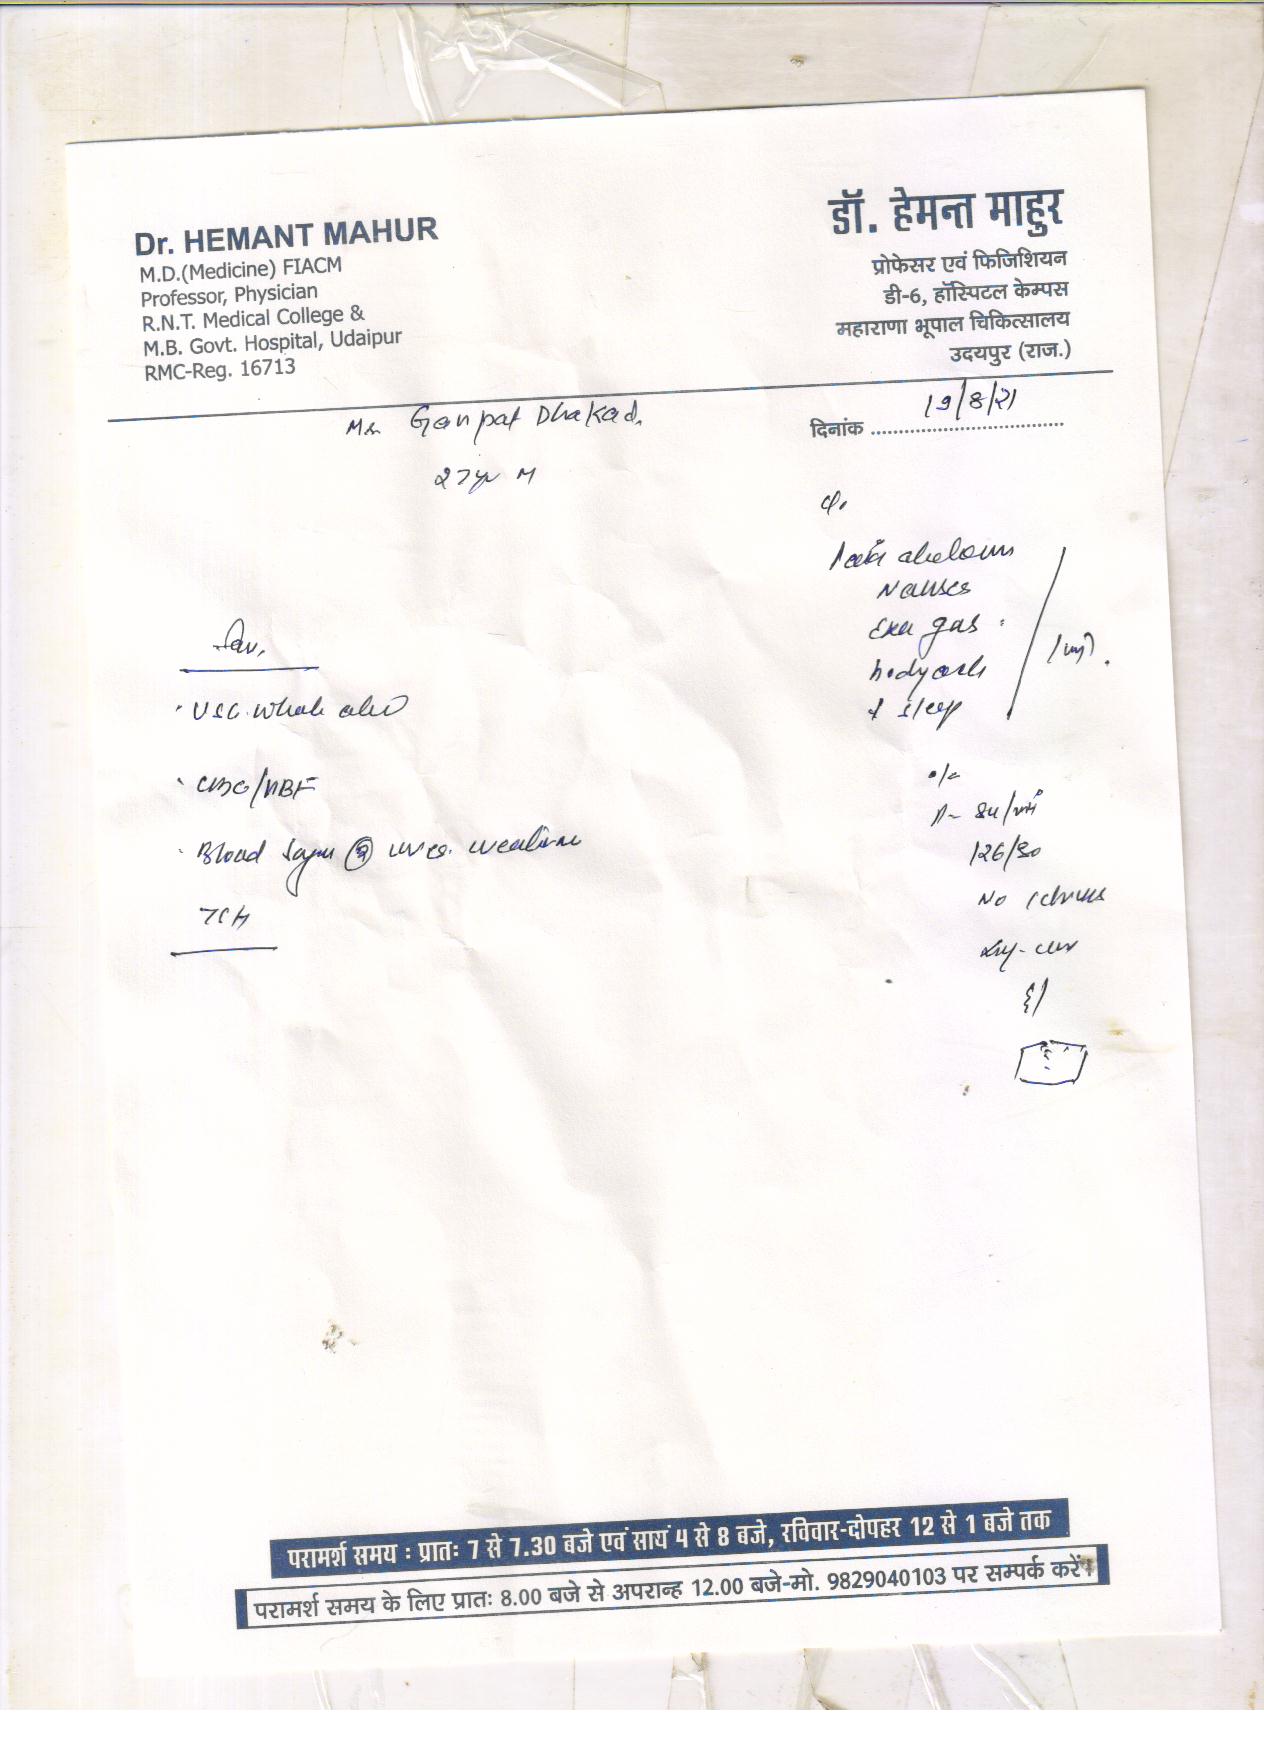 Dr. HEMANT MAHUR
M.D.(Medicine) FIACM
Professor, Physician
R.N.T. Medical College &
M.B. Govt. Hospital, Udaipur
RMC-Reg. 16713
डॉ. हेमन्त माहुर
प्रोफेसर एवं फिजिशियन
डी-6, हॉस्पिटल केम्पस
महाराणा भूपाल चिकित्सालय
उदयपुर (राज.)
दिनांक 19/8/21
Mr Ganpat Dhakad.
27yr M
Pain abdomen
Nausea
gas
bodyache
↓ sleep
Inv.
USG whole abd
CBC/PBF
Blood Sugar
O/E
P- 84/min
126/80
No icterus
परामर्श समय : प्रातः 7 से 7.30 बजे एवं सायं 4 से 8 बजे, रविवार-दोपहर 12 से 1 बजे तक
परामर्श समय के लिए प्रातः 8.00 बजे से अपरान्ह 12.00 बजे-मो. 9829040103 पर सम्पर्क करें।